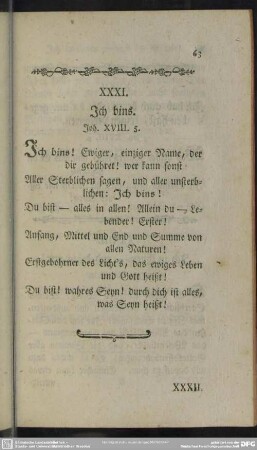 63
XXXI.
Ich bins.
Joh. XVIII. 5.
Ich bins! Ewiger, einziger Name, der
dir gebühret! wer kann sonst
Aller Sterblichen sagen, und aller unsterb-
lichen: Ich bins!
Du bist — alles in allen! Allein du — Le-
bender! Erster!
Anfang, Mittel und End und Summe von
allen Naturen!
Erstgebohrner des Licht's, das ewiges Leben
und Gott heißt!
Du bist! wahres Seyn! durch dich ist alles,
was Seyn heißt!
XXXII.